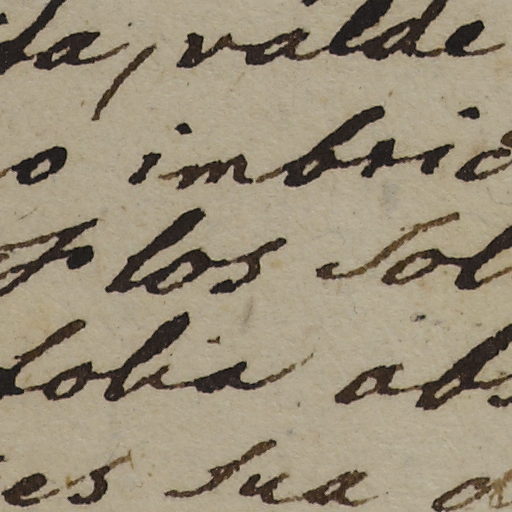 ta, valde
o imbric
Flos sol
folia abs
es sua